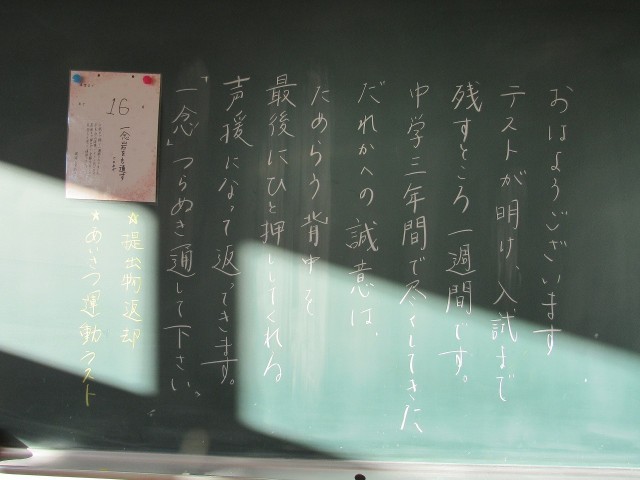 おはようございます
テストが明け、入試まで
残すところ一週間です。
中学三年間で尽くしてきた
だれかへの誠意は、
ためらう背中を
最後にひと押ししてくれる
声援になって返ってきます。
「一念」つらぬき通して下さい。
16
一念岩をも通す
☆提出物返却
★あいさつ運動ラスト